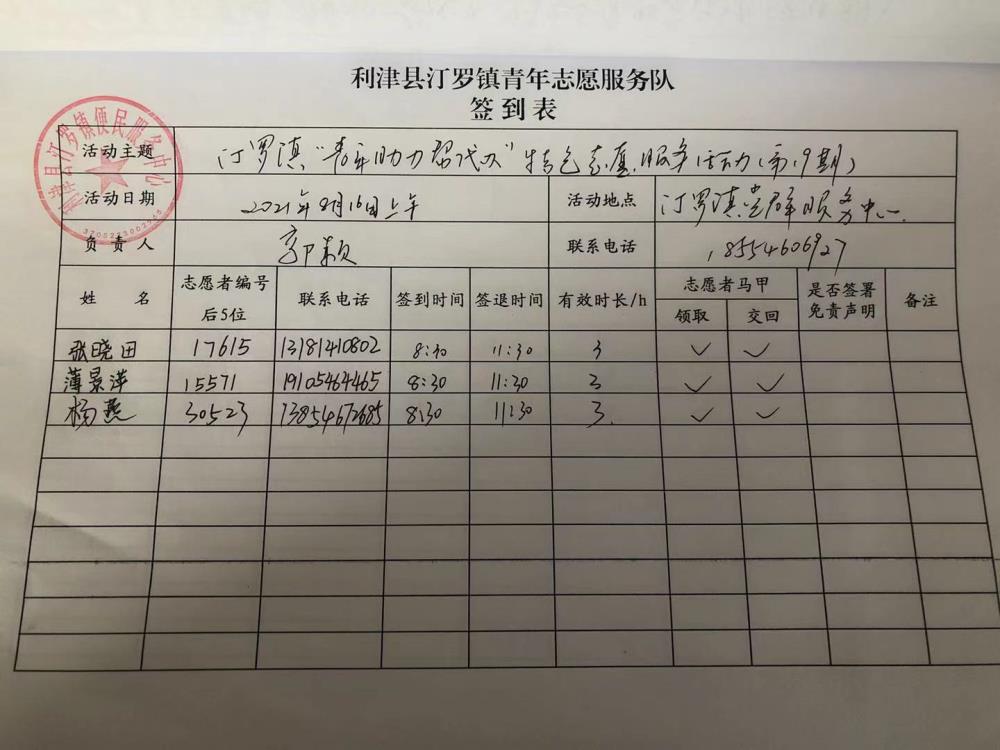 利津县汀罗镇青年志愿服务队
签到表
利津县汀罗镇便民服务中心
活动主题 汀罗镇"青年助力帮代办"特色志愿服务活动(第19期)
活动日期 2021年8月16日上午 活动地点 汀罗镇党群服务中心
负责人 郭颖 联系电话 18554606927
姓名 志愿者编号后5位 联系电话 签到时间 签退时间 有效时长/h 志愿者马甲 是否签署免责声明 备注
领取 交回
张晓田 17615 13181410802 8:30 11:30 3 ✓ ✓
薄景萍 15571 19105464465 8:30 11:30 3 ✓ ✓
杨燕 30523 13854672685 8:30 11:30 3 ✓ ✓